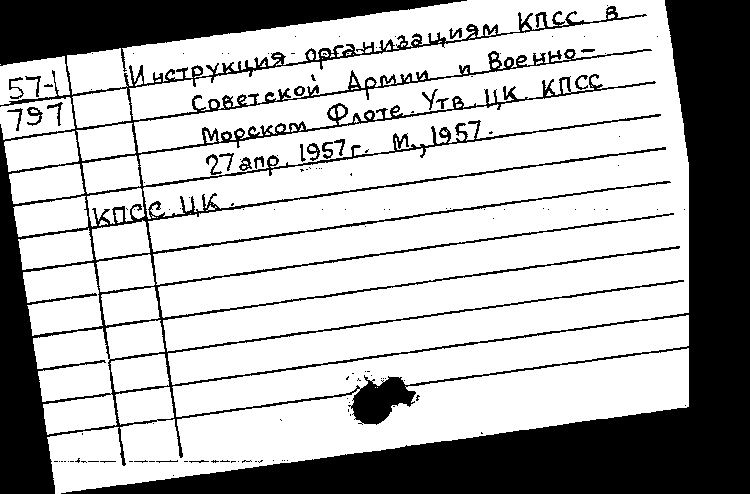 57-1
797
Инструкция организациям КПСС в
Советской Армии и Военно-
Морском Флоте. Утв. ЦК КПСС
27 апр. 1957 г. М., 1957.
КПСС. ЦК.